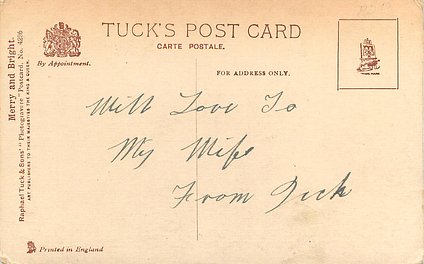 TUCK'S POST CARD
CARTE POSTALE.
By Appointment.
FOR ADDRESS ONLY.
TRADE MARK
Merry and Bright.
Raphael Tuck & Sons' "Photogravure" Postcard, No. 4236
ART PUBLISHERS TO THEIR MAJESTIES THE KING & QUEEN.
With Love To
My Wife
From Dick
Printed in England